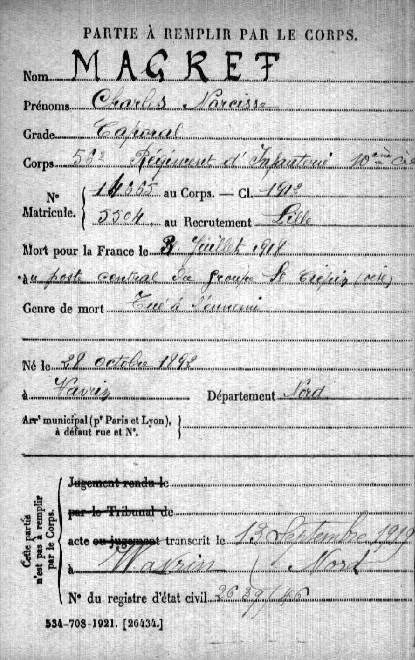 PARTIE À REMPLIR PAR LE CORPS.
Nom MAGREF
Prénoms Charles Narcisse
Grade Caporal
Corps 53e Régiment d'Infanterie 10ème Cie
N° Matricule. 14365 au Corps. — Cl. 1912
5504 au Recrutement Lille
Mort pour la France le Juillet 1918
à au poste central du groupe St Crépin (oise)
Genre de mort Tué à l'ennemi
Né le 28 octobre 1892
à Wavrin Département Nord
Arrt municipal (pr Paris et Lyon),
à défaut rue et N°.
Cette partie n'est pas à remplir par le Corps.
Jugement rendu le
par le Tribunal de
acte ou jugement transcrit le 13 Septembre 1919
à Wavrin Nord
N° du registre d'état civil 2639/46
534-708-1921. [26434.]